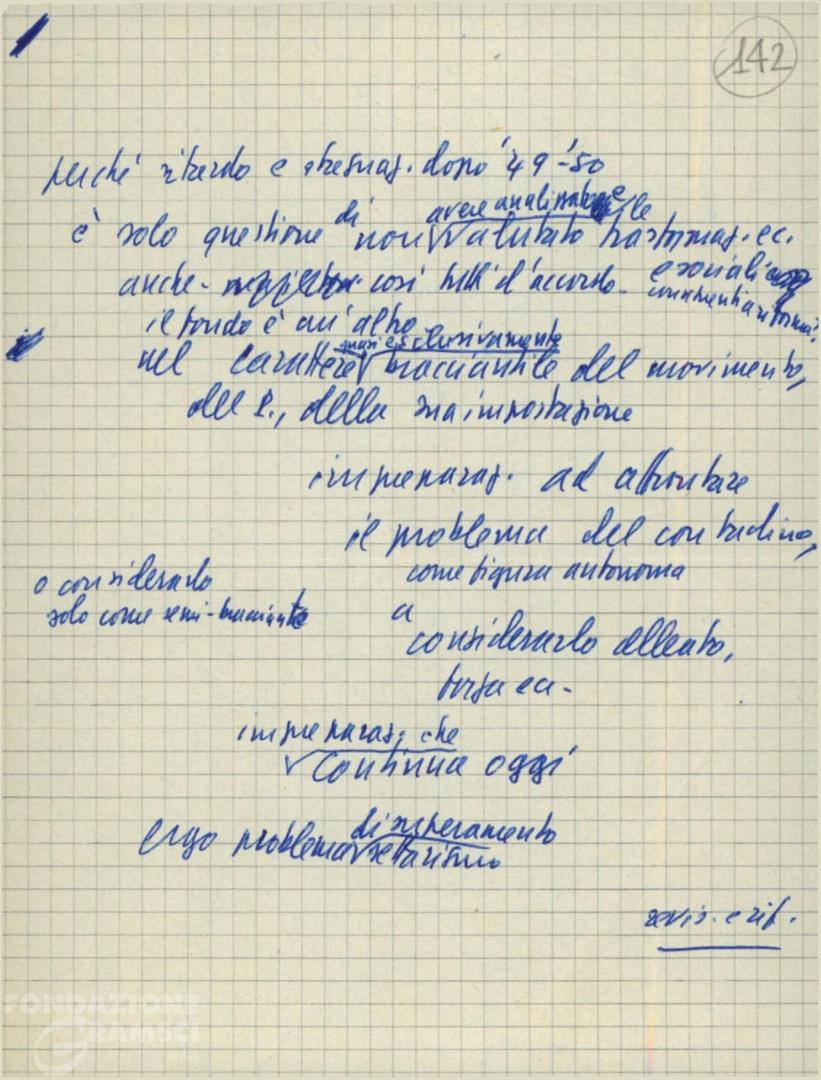 142
perché ritardo e stagnaz. dopo '49-'50
è solo questione di non avere analizzato e valutato le trasformaz. ec.
anche - così tutti d'accordo - e sociali
conseguenti a riforma?
il fondo è un'altro
nel carattere quasi esclusivamente bracciantile del movimento,
del P., della sua impostazione
impreparaz. ad affrontare
il problema del contadino,
come figura autonoma
o considerarlo
solo come semi-bracciante
a
considerarlo alleato,
forza ec.
impreparaz. che
continua oggi
ergo problema di superamento settarismo
revis. e rif.
FONDAZIONE
GRAMSCI